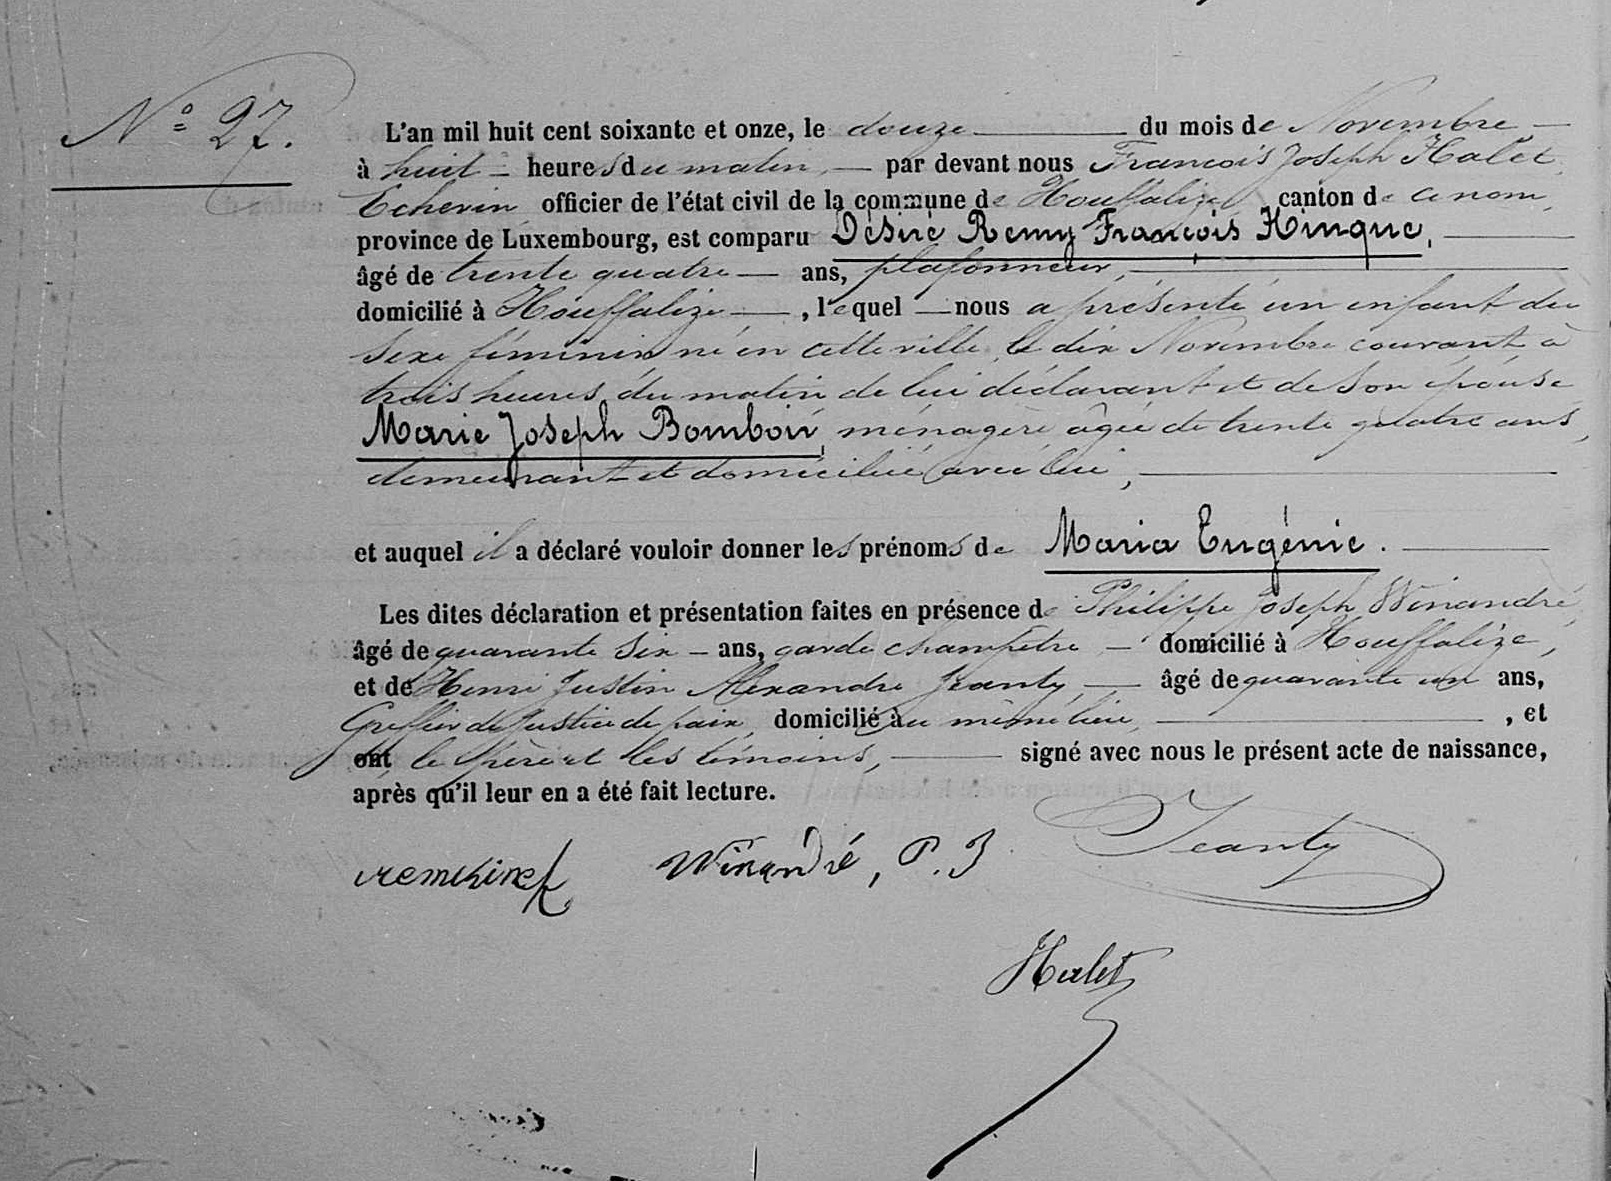 N° 27.
L'an mil huit cent soixante et onze, le douze du mois de Novembre
à huit heures du matin, par devant nous François Joseph Halet,
Echevin officier de l'état civil de la commune de Houffalize, canton de ce nom,
province de Luxembourg, est comparu Désiré Remy François Hinque,
âgé de trente quatre ans, plafonneur,
domicilié à Houffalize, lequel nous a présenté un enfant du
sexe féminin né en cette ville, le dix Novembre courant, à
trois heures du matin de lui déclarant et de son épouse
Marie Joseph Bomboir, ménagère, âgée de trente quatre ans,
demeurant et domiciliée avec lui,
et auquel il a déclaré vouloir donner les prénoms de Maria Eugénie.
Les dites déclaration et présentation faites en présence de Philippe Joseph Winandré,
âgé de quarante six ans, garde champêtre domicilié à Houffalize,
et de Henri Justin Alexandre Jeanty, âgé de quarante un ans,
Greffier de Justice de paix, domicilié au même lieu, , et
ont, le père et les témoins, signé avec nous le présent acte de naissance,
après qu'il leur en a été fait lecture.
Winandré, P. J Jeanty
Halet